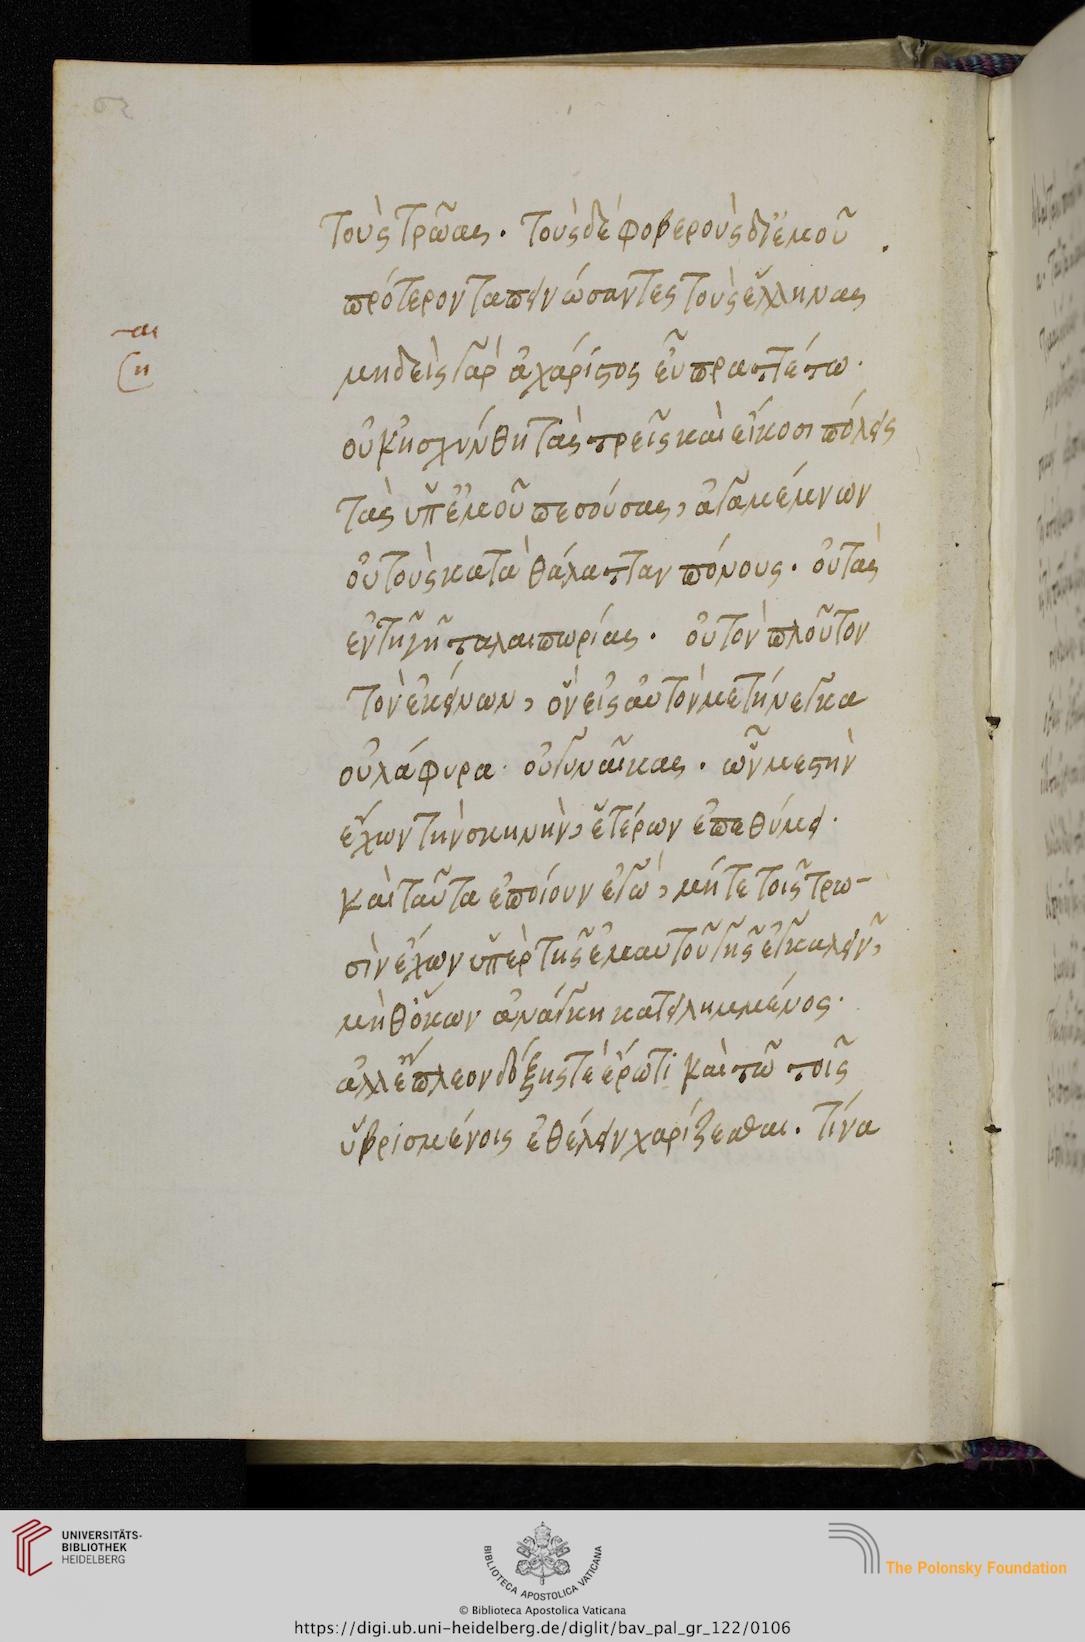 τοὺς τρῶας. τοὺς δὲ φοβεροὺς δι' ἐμοῦ
πρότερον ταπεινώσαντες τοὺς ἕλληνας
μηδεὶς γὰρ ἀχάριστος εὖ πραττέτω.
οὐκ ἠσχύνθη τὰς τρεῖς καὶ εἴκοσι πόλεις
τὰς ὑπ' ἐμοῦ πεσούσας, ἀγαμέμνων
οὐ τοὺς κατὰ θάλατταν πόνους. οὐ τὰς
ἐν τῇ γῇ ταλαιπωρίας. οὐ τὸν πλοῦτον
τὸν ἐκείνων, ὃν εἰς αὐτὸν μετήνεγκα
οὐ λάφυρα. οὐ γυναῖκας. ὧν μεστὴν
ἔχων τὴν σκηνὴν, ἑτέρων ἐπεθύμει.
καὶ ταῦτα ἐποίουν ἐγὼ, μήτε τοῖς τρω-
σὶν ἔχων ὑπὲρ τῆς ἐμαυτοῦ γῆς ἐγκαλεῖν,
μὴθ' ὅρκων ἀνάγκη κατειλημμένος.
ἀλλ' ἔπλεον δόξης τὲ ἔρωτι καὶ τῶ τοῖς
ὑβρισμένοις ἐθέλειν χαρίζεσθαι. τίνα
αι
η
UNIVERSITÄTS-
BIBLIOTHEK
HEIDELBERG
BIBLIOTECA APOSTOLICA VATICANA
The Polonsky Foundation
© Biblioteca Apostolica Vaticana
https://digi.ub.uni-heidelberg.de/diglit/bav_pal_gr_122/0106